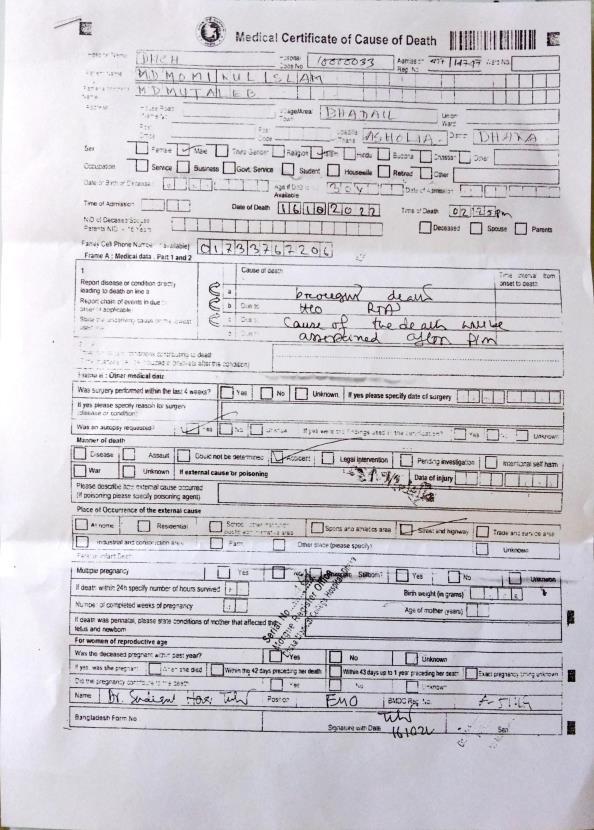 Medical Certificate of Cause of Death
Hospital Name DMCH Hospital Code No 10000033 Admission Reg. No Ward No.
MD MOMINUL ISLAM
Name MD MUTALEB
Address House Road Village/Area Town BHADAIL Union Ward
Post Office Post Code Upazila Thana ASHOLIA District DHAKA
Sex Female Male Third Gender Religion Hindu Buddha Christian Other
Occupation Service Business Govt. Service Student Housewife Retired Other
Date of Birth of Deceased Age if DOB is Available 30Y Date of Admission
Time of Admission Date of Death 16102022 Time of Death
NID of Deceased Spouse Deceased Spouse Parents
Family Cell Phone Number (if available) 01733767206
Frame A: Medical data. Part 1 and 2
1 Cause of death Time interval from onset to death
Report disease or condition directly leading to death on line a a brought death
Report chain of events in due to order if applicable b Due to H/O RTA
State the underlying cause on the lowest used line c Due to Cause of the death will be
ascertained after P/M
Frame B: Other medical data
Was surgery performed within the last 4 weeks? Yes No Unknown If yes please specify date of surgery
If yes please specify reason for surgery (disease or condition)
Was an autopsy requested? Yes No Unknown If yes were the findings used in the certification? Yes No Unknown
Manner of death
Disease Assault Could not be determined Accident Legal intervention Pending investigation Intentional self harm
War Unknown If external cause or poisoning Date of injury
Please describe how external cause occurred (If poisoning please specify poisoning agent)
Place of Occurrence of the external cause
At home Residential School other institution public administrative area Sports and athletics area Street and highway Trade and service area
Industrial and construction area Farm Other place (please specify) Unknown
Fetal or infant Death
Multiple pregnancy Yes No Unknown Stillborn? Yes No Unknown
If death within 24h specify number of hours survived Birth weight (in grams)
Number of completed weeks of pregnancy Age of mother (years)
If death was perinatal, please state conditions of mother that affected the fetus and newborn
For women of reproductive age
Was the deceased pregnant within past year? Yes No Unknown
If yes, was she pregnant When she died Within the 42 days preceding her death Within 43 days up to 1 year preceding her death Exact pregnancy timing unknown
Did the pregnancy contribute to the death Yes No Unknown
Name Dr. Position EMO BMDC Reg. No.
Bangladesh Form No Signature with Date 161022 Seal
Serial No
Morgue Register Office
Dhaka Medical College Hospital